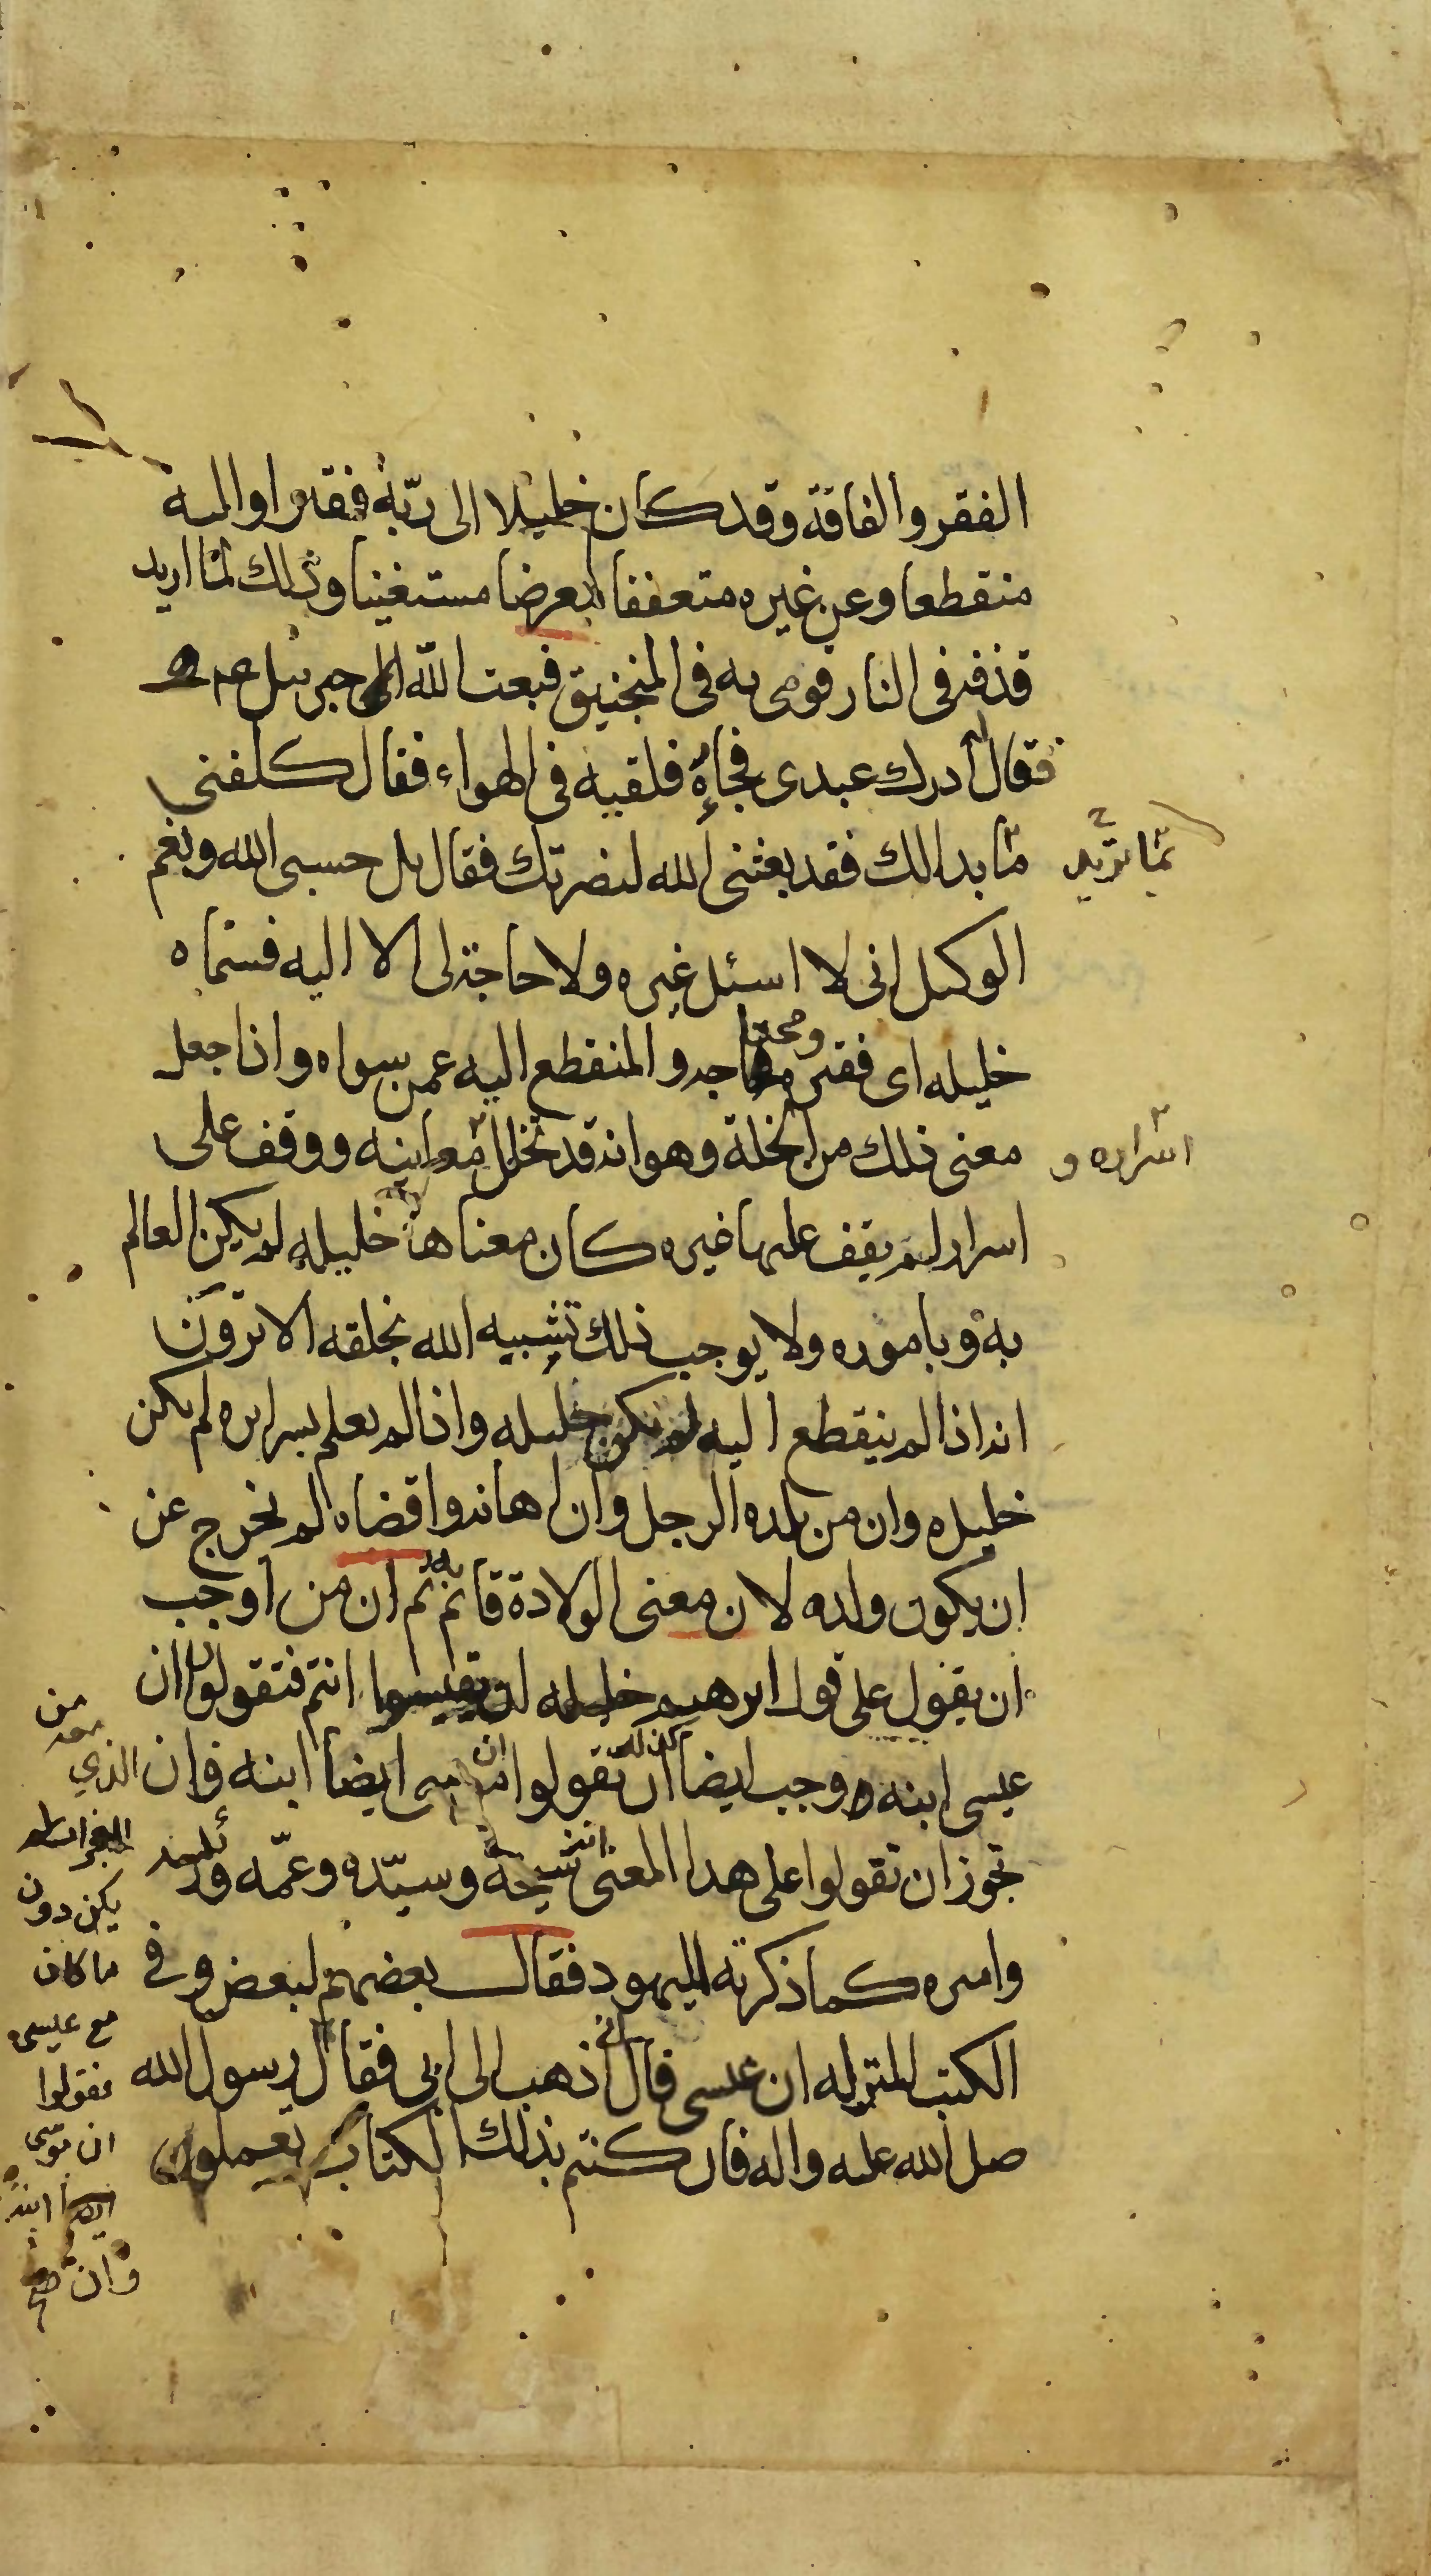 الفقر والفاقة وقد كان خليلا الى ربّه فقيرا واليه
منقطعا وعن غيره متعففا معرضا مستغنيا وذلك لمّا اريد
قذفه فى النار فرمى به فى المنجنيق فبعث الله الى جبرئيل
فقال ادرك عبدى فجاءه فلقيه فى الهواء فقال كلفنى
ما بدا لك فقد بعثنى الله لنصرتك فقال بل حسبى الله ونعم
الوكيل انى لا اسئل غيره ولا حاجة لى الا اليه فسمّاه
خليله اى فقيره ومحتاجه والمنقطع اليه عمن سواه واذا جعل
معنى ذلك من الخلة وهو انه قد تخلل معانيه ووقف على
اسرار لم يقف عليها غيره كان معناه خليله العالم
به وباموره ولا يوجب ذلك تشبيه الله بخلقه الا ترون
انه اذا لم ينقطع اليه لم يكن خليله واذا لم يعلم باسراره لم يكن
خليله وان من يلده الرجل وان اهانه واقصاه لم يخرج عن
ان يكون ولده لان معنى الولادة قائم به ثم ان من اوجب
ان يقول على قول ابرهيم خليله انتم فتقولوا ان
عيسى ابنه وجب ايضا كذلك ان تقولوا ان موسى ايضا ابنه فان الذي
تجوز ان تقولوا على هذا المعنى انه شيخه وسيّده وعمّه ورئيسه
واميره كما ذكرته لليهود فقال بعضهم لبعض وفي
الكتب المنزلة ان عيسى قال اذهب الى ابى فقال رسول الله
صلى الله عليه واله فان كنتم بذلك الكتاب تعملون
اسراره و
من
معه
يكن دون
ما كان
مع عيسى
فقولوا
ان موسى
ايضا ابنه
وان صح